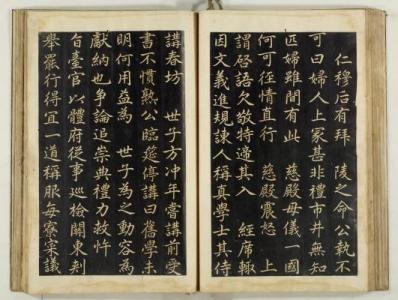 仁穆后有拜 陵之命公執不
可曰婦人上冢甚非禮市井無知
匹婦雖間有此 慈殿母儀一國
何可徑情直行 慈殿震怒 上
謂啓語欠敬特遞其入 經席輒
因文義進規諫人稱真學士其侍
講春坊 世子方冲年嘗講前受
書不慣熟公臨筵停講曰舊學未
明何用益為 世子為之動容為
獻納也爭論追崇典禮力救忤
旨臺官以體府從事巡檢關東刺
舉罷行得宜一道稱服每寮寀議